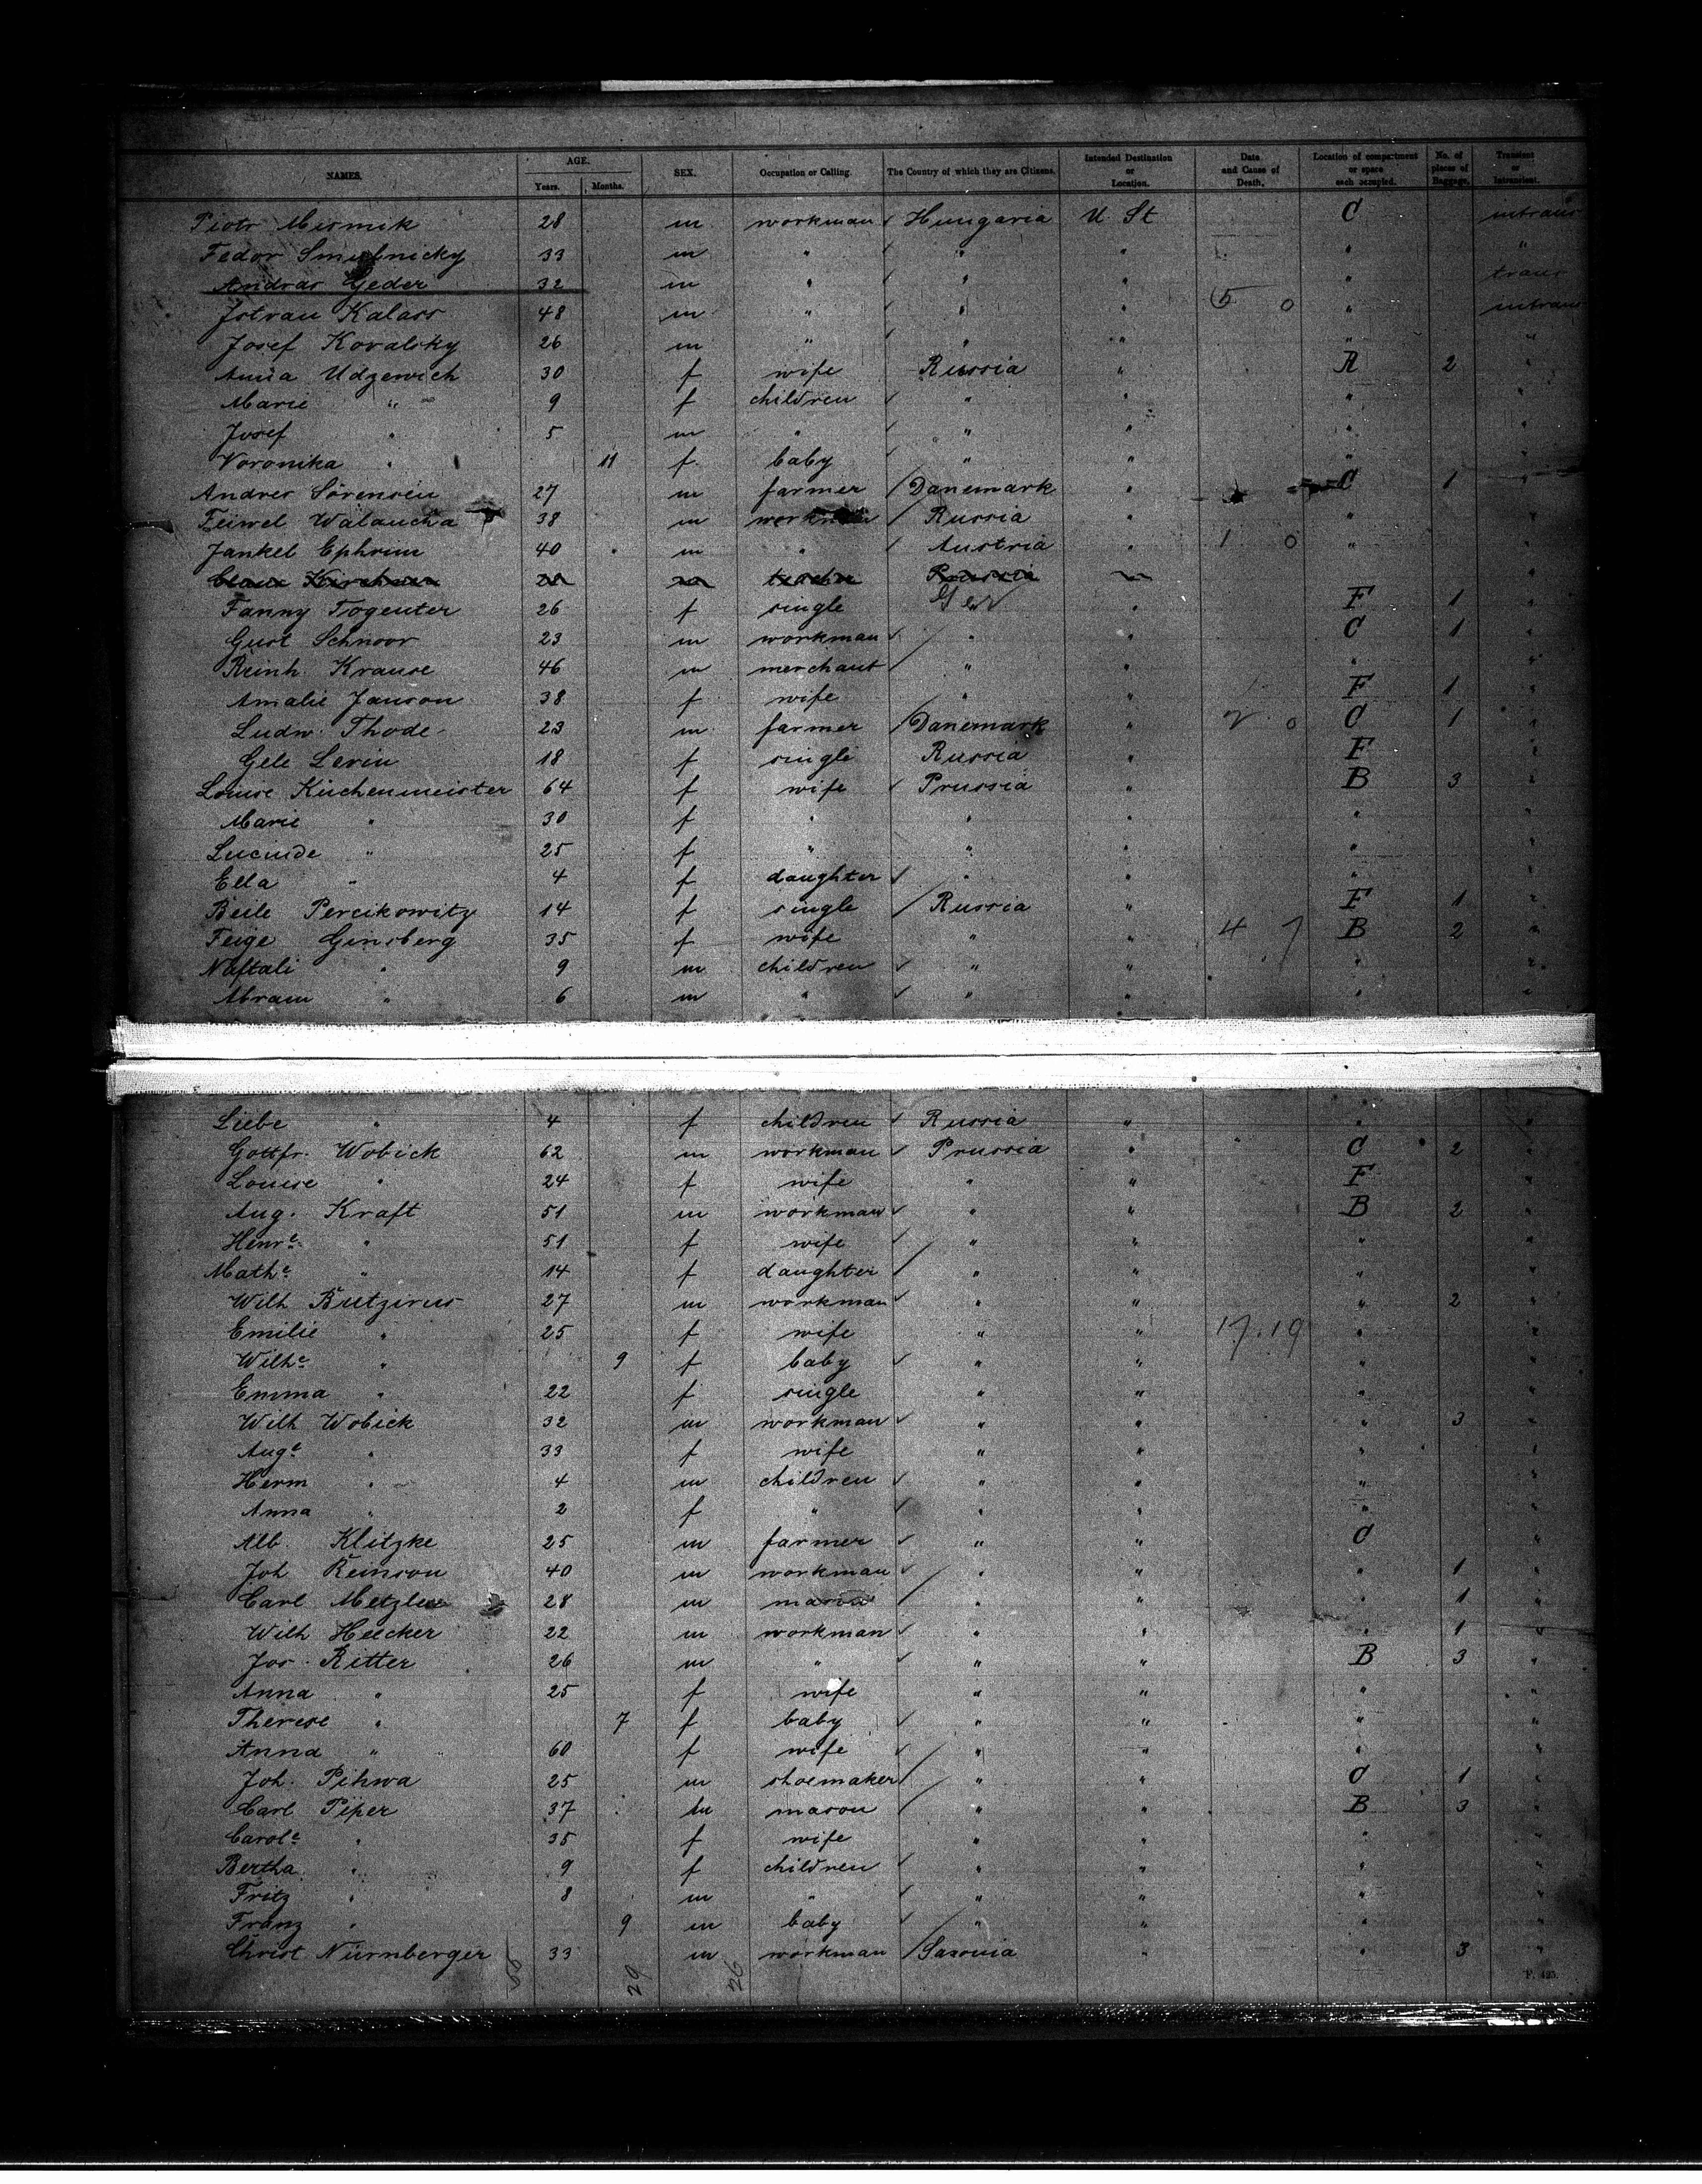 NAMES. AGE. Years. Months. SEX. Occupation or Calling. The Country of which they are Citizens. Intended Destination or Location. Date and Cause of Death. Location of compartment or space each occupied. No. of pieces of Baggage. Transient or Intransient.
Piotr Mirmik 28 m workman Hungaria U St C intrans
Fedor 33 m " " " " "
Andras Geder 32 m " " " " trans
Istvan Kalass 48 m " " " 5 0 " intrans
Josef Kovalsky 26 m " " " " "
Anna Udzewich 30 f wife Russia " A 2 "
Marie " 9 f children " " " "
Josef " 5 m " " " " "
Voronika " 11 f. baby " " " "
Andres Sörensen 27 m farmer Danemark " C 1 "
Feiwel Walaucha 38 m workman Russia " " "
Jankel Ephrim 40 m " Austria " 1 0 " "
Fanny Togenter 26 f single Ger " F 1 "
Gust Schnoor 23 m workman " " C 1 "
Reinh. Krause 46 m merchant " " " "
Amalie Janson 38 f wife " " F 1 "
Ludw. Thode 23 m farmer Danemark " 2 0 C 1 "
Gele Levin 18 f single Russia " F "
Louise Küchenmeister 64 f wife Prussia " B 3 "
Marie " 30 f " " " " "
Lucinde " 25 f " " " " "
Ella " 4 f daughter " " " "
Beile Percikowitz 14 f single Russia " F 1 "
Feige Ginsberg 35 f wife " " 4 7 B 2 "
Naftali " 9 m children " " " "
Abram " 6 m " " " " "
Liebe " 4 f children Russia " " "
Gottfr. Wobick 62 m workman Prussia " C 2 "
Louise " 24 f wife " " F "
Aug. Kraft 51 m workman " " B 2 "
Henre. " 51 f wife " " " "
Mathe. " 14 f daughter " " " "
Wilh Butzirus 27 m workman " " " 2 "
Emilie " 25 f wife " " 17.19 " "
Wilhe " 9 f baby " " " "
Emma " 22 f single " " " "
Wilh Wobick 32 m workman " " " 3 "
Auge " 33 f wife " " " "
Herm " 4 m children " " " "
Anna " 2 f " " " " "
Alb. Klitzke 25 m farmer " " C "
Joh Reinson 40 m workman " " " 1 "
Carl Metzler 28 m mason " " " 1 "
Wilh Heecker 22 m workman " " " 1 "
Jos. Ritter 26 m " " " B 3 "
Anna " 25 f wife " " " "
Therese " 7 f baby " " " "
Anna " 60 f wife " " " "
Joh. Pihwa 25 m shoemaker " " C 1 "
Carl Piper 37 m mason " " B 3 "
Carole " 35 f wife " " " "
Bertha " 9 f children " " " "
Fritz " 8 m " " " " "
Franz " 9 m baby " " " "
Christ Nürnberger 33 m workman Saxonia " " 3 "
29 26